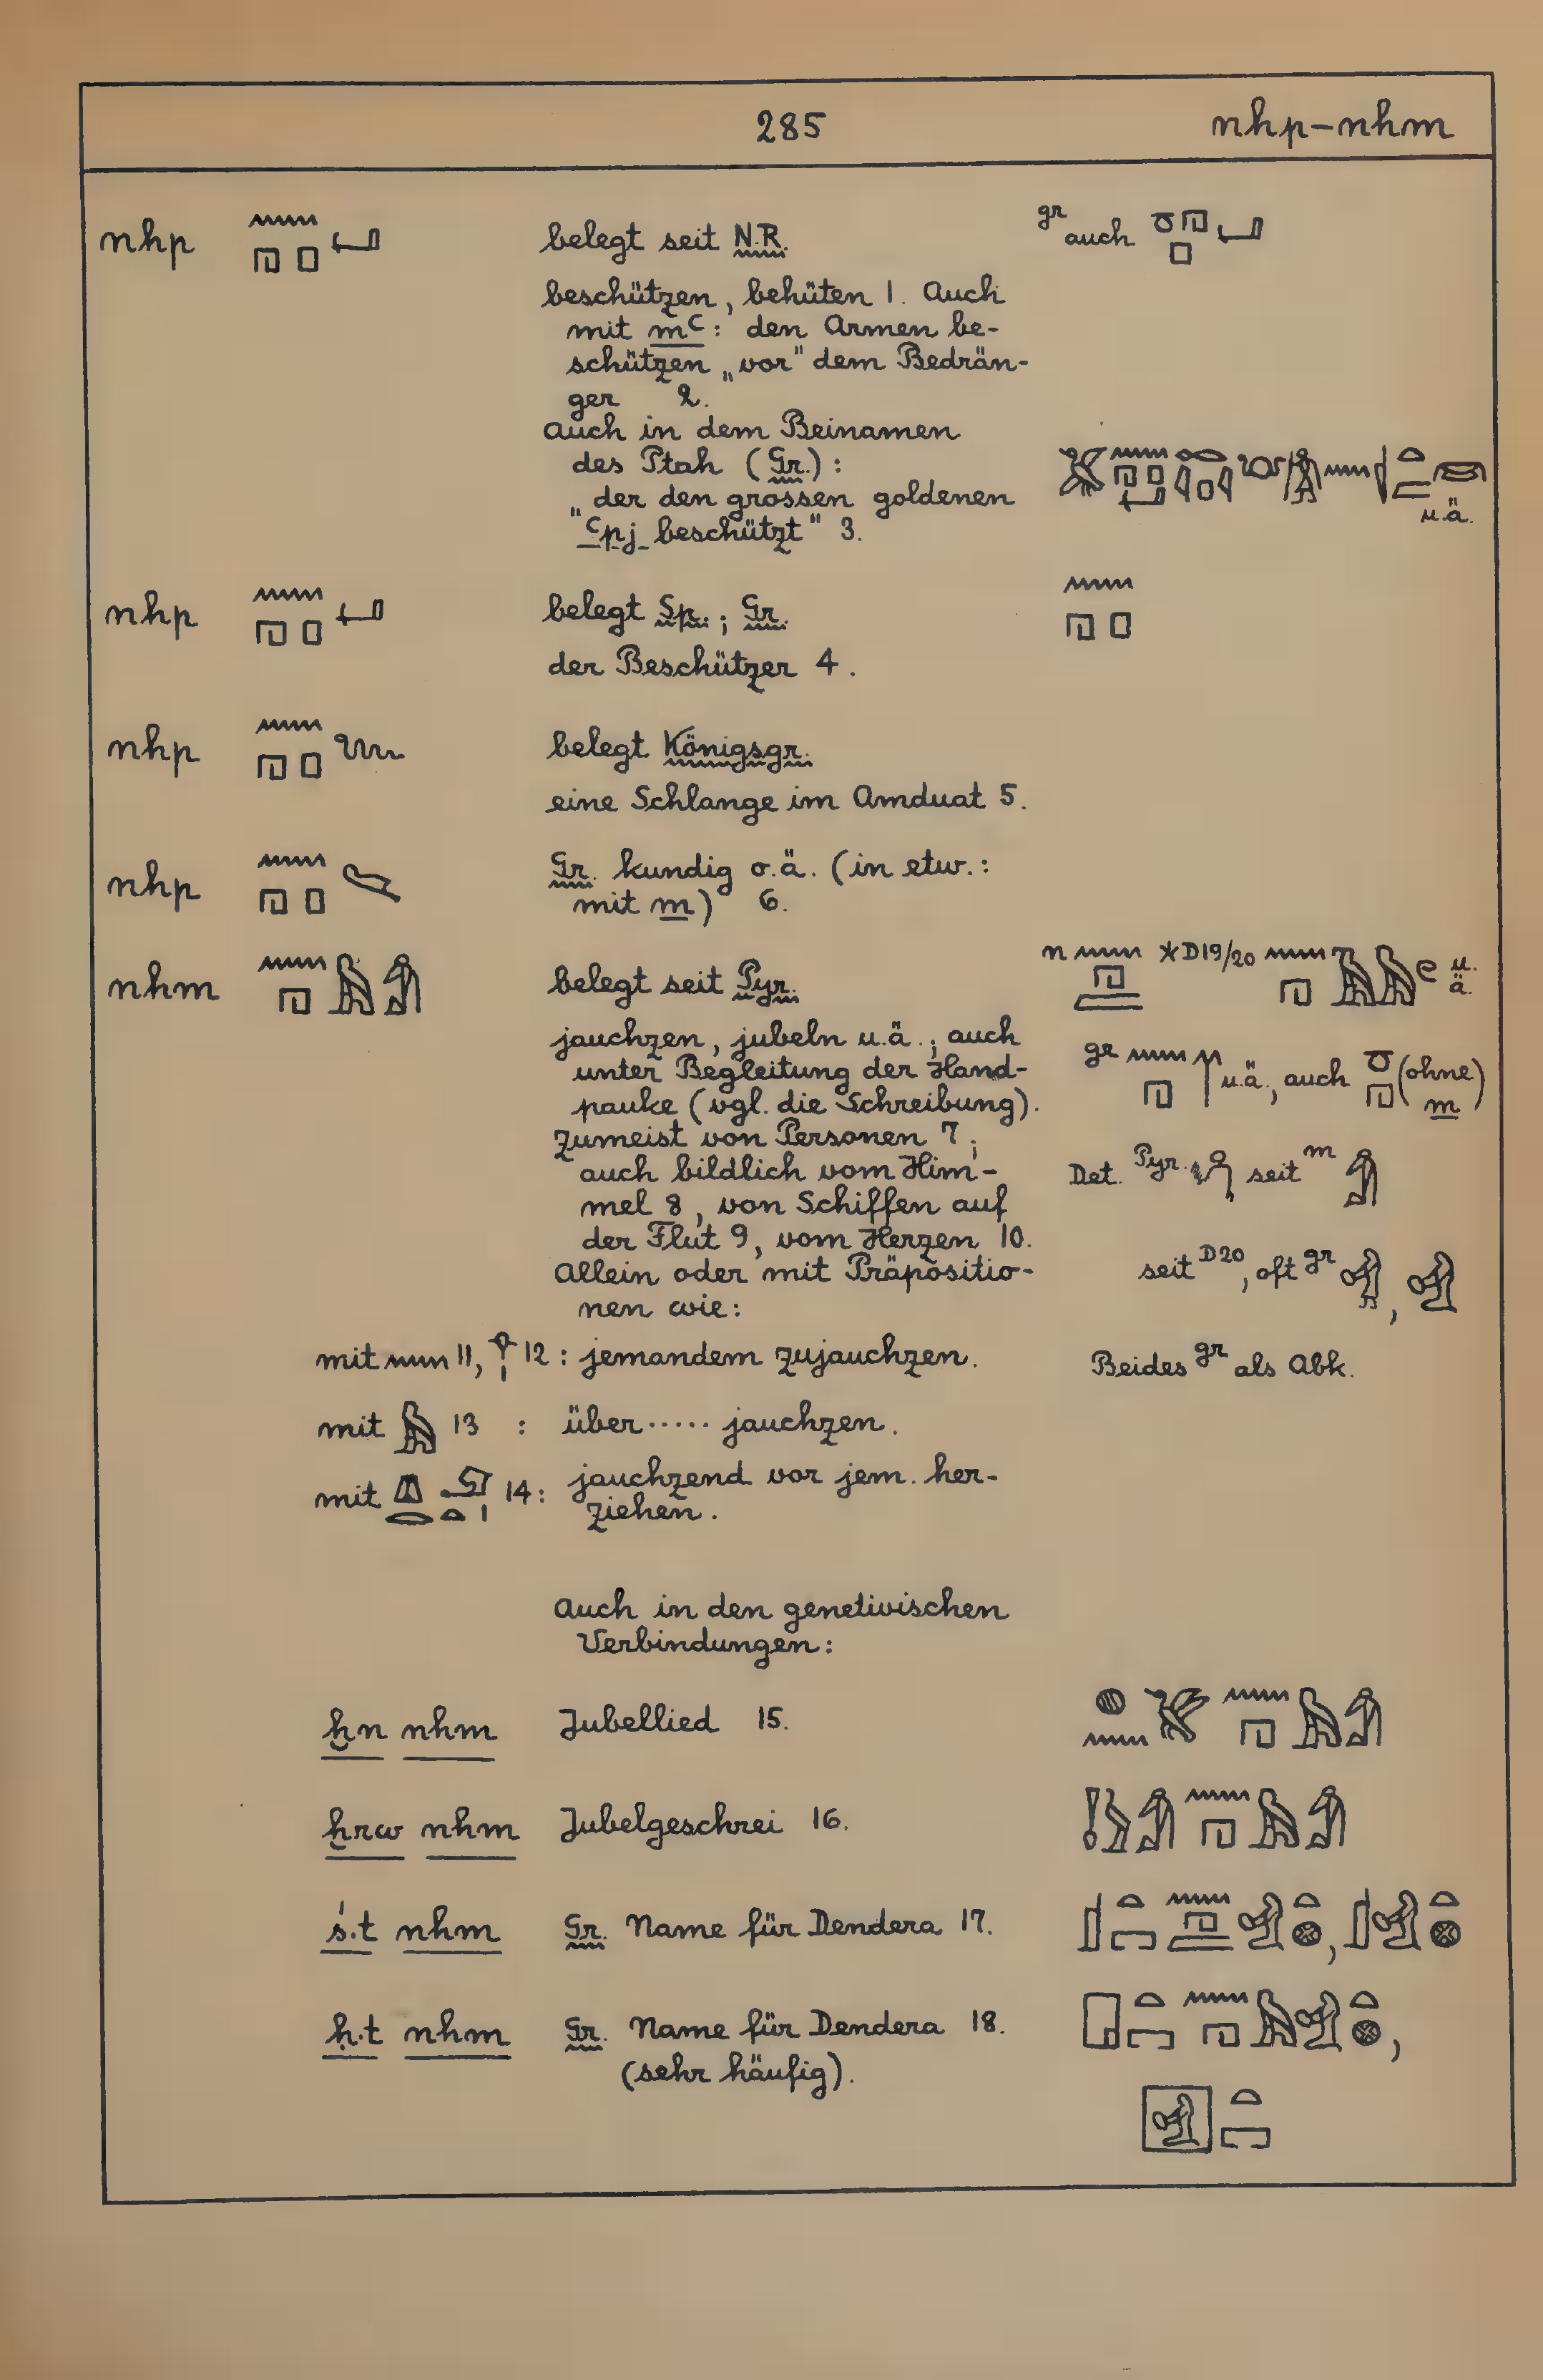 285 nhp–nhm
nhp 𓈖𓉔𓊪𓂝 belegt seit N.R. gr auch
beschützen, behüten 1. Auch
mit mꜥ: den Armen be-
schützen „vor" dem Bedrän-
ger 2.
Auch in dem Beinamen
des Ptah (Gr.):
„der den grossen goldenen
ꜥpj beschützt" 3.
u.ä.
nhp 𓈖𓉔𓊪 belegt Sp.; Gr. 𓈖𓉔𓊪
der Beschützer 4.
nhp 𓈖𓉔𓊪𓆙 belegt Königsgr.
eine Schlange im Amduat 5.
nhp 𓈖𓉔𓊪 Gr. kundig o.ä. (in etw.:
mit m) 6.
nhm 𓈖𓉔𓅓𓀁 belegt seit Pyr. n * D19/20 u.ä.
jauchzen, jubeln u.ä.; auch
unter Begleitung der Hand-
pauke (vgl. die Schreibung).
gr u.ä., auch (ohne m)
Zumeist von Personen 7;
auch bildlich vom Him-
mel 8, von Schiffen auf
der Flut 9, vom Herzen 10.
Det. Pyr. seit m
Allein oder mit Präpositio-
nen wie:
seit D20, oft gr ,
mit 𓈖 11, 𓁷𓏤 12 : jemandem zujauchzen. Beides gr als Abk.
mit 𓅓 13 : über ..... jauchzen.
mit 14: jauchzend vor jem. her-
ziehen.
Auch in den genetivischen
Verbindungen:
ḫn nhm Jubellied 15.
ḫrw nhm Jubelgeschrei 16.
ś.t nhm Gr. Name für Dendera 17.
ḥ.t nhm Gr. Name für Dendera 18.
(sehr häufig).